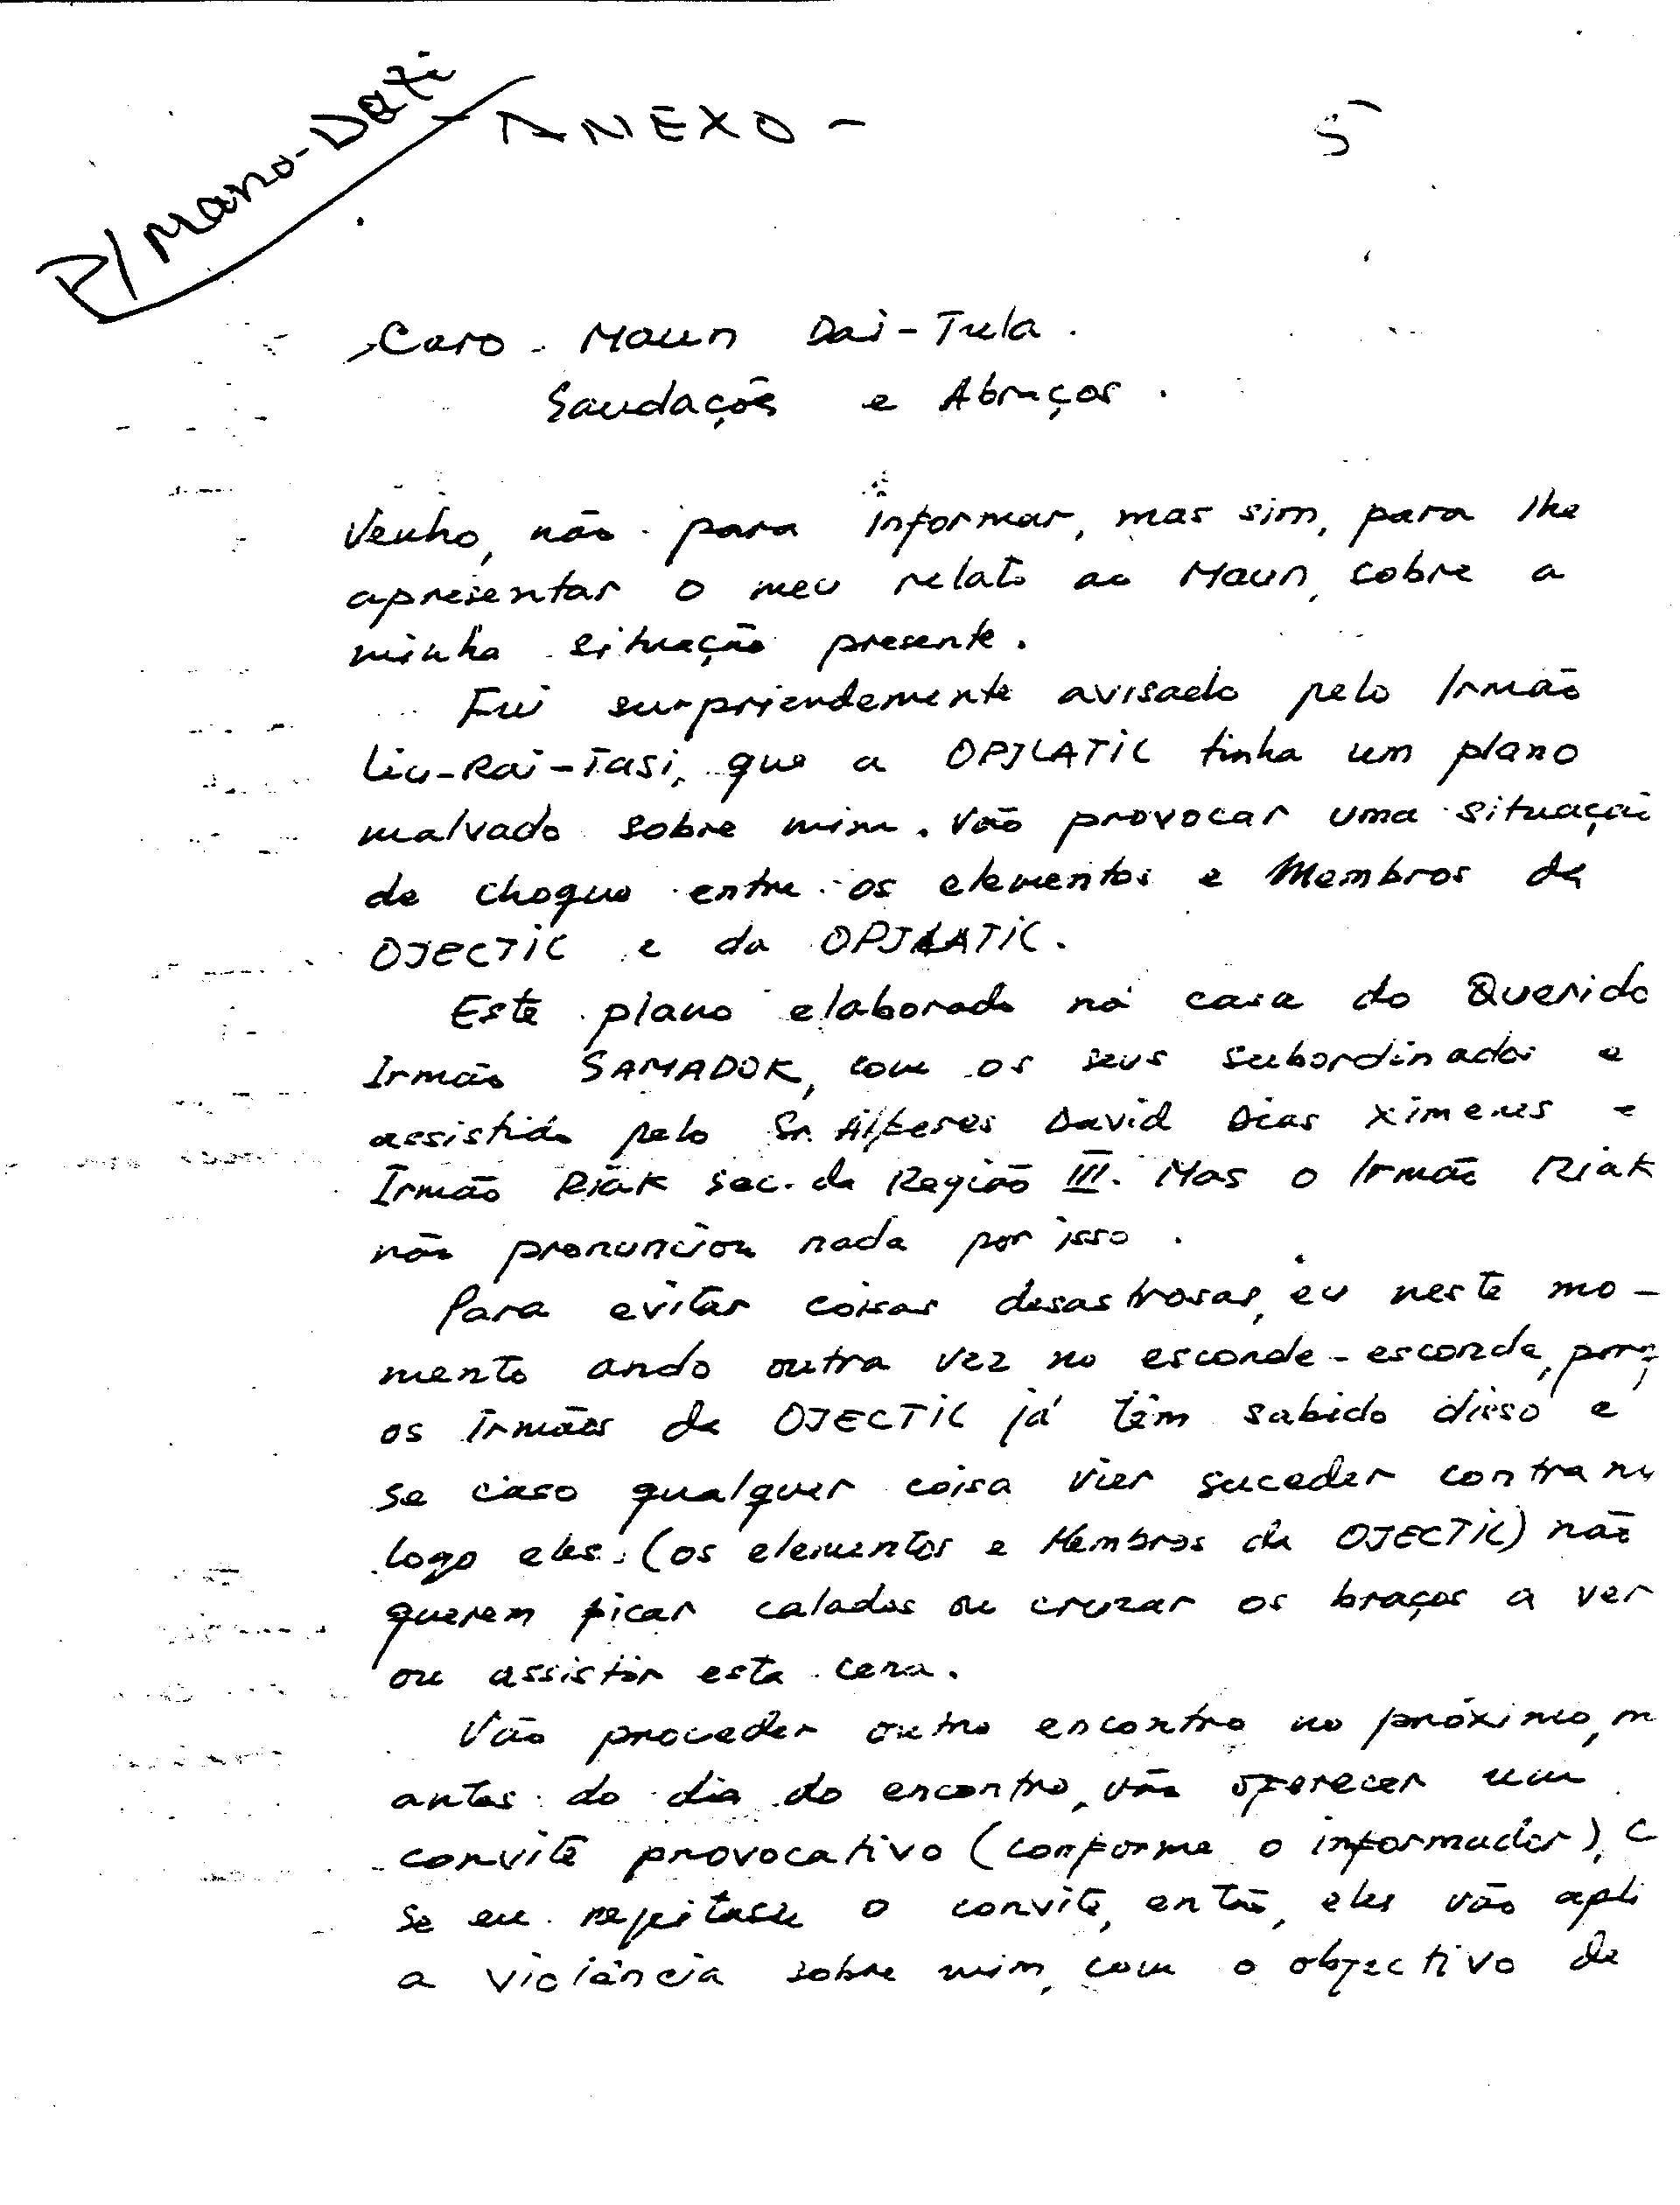 P/ Mano-Dati
- ANEXO - 5
Caro Maun Dai-Tula.
Saudações e Abraços.
Venho, não para informar, mas sim, para lhe
apresentar o meu relato ao Maun, cobre a
minha situação presente.
Fui surpriendemente avisado pelo Irmão
Liu-Rai-Tasi, que a OPJLATIL tinha um plano
malvado sobre mim. Vão provocar uma situação
de choque entre os elementos e Membros da
OJECTIL e da OPJLATIL.
Este plano elaborado na casa do Querido
Irmão SAMADOK, com os seus subordinados e
assistido pelo Sr. Alferes David Dias Ximenes e
Irmão Riak sec. da Região III. Mas o Irmão Riak
não pronunciou nada por isso.
Para evitar coisas desastrosas, eu neste mo-
mento ando outra vez no esconde-esconde, porq
os Irmãos da OJECTIL já têm sabido disso e
se caso qualquer coisa vier suceder contra
logo eles (os elementos e Membros da OJECTIL) não
querem ficar calados ou cruzar os braços a ver
ou assistir esta cena.
Vão proceder outro encontro no próximo, m
antes do dia do encontro, vão oferecer um
convite provocativo (conforme o informador), C
se eu rejeitasse o convite, então, eles vão apli
a violência sobre mim, com o objectivo de